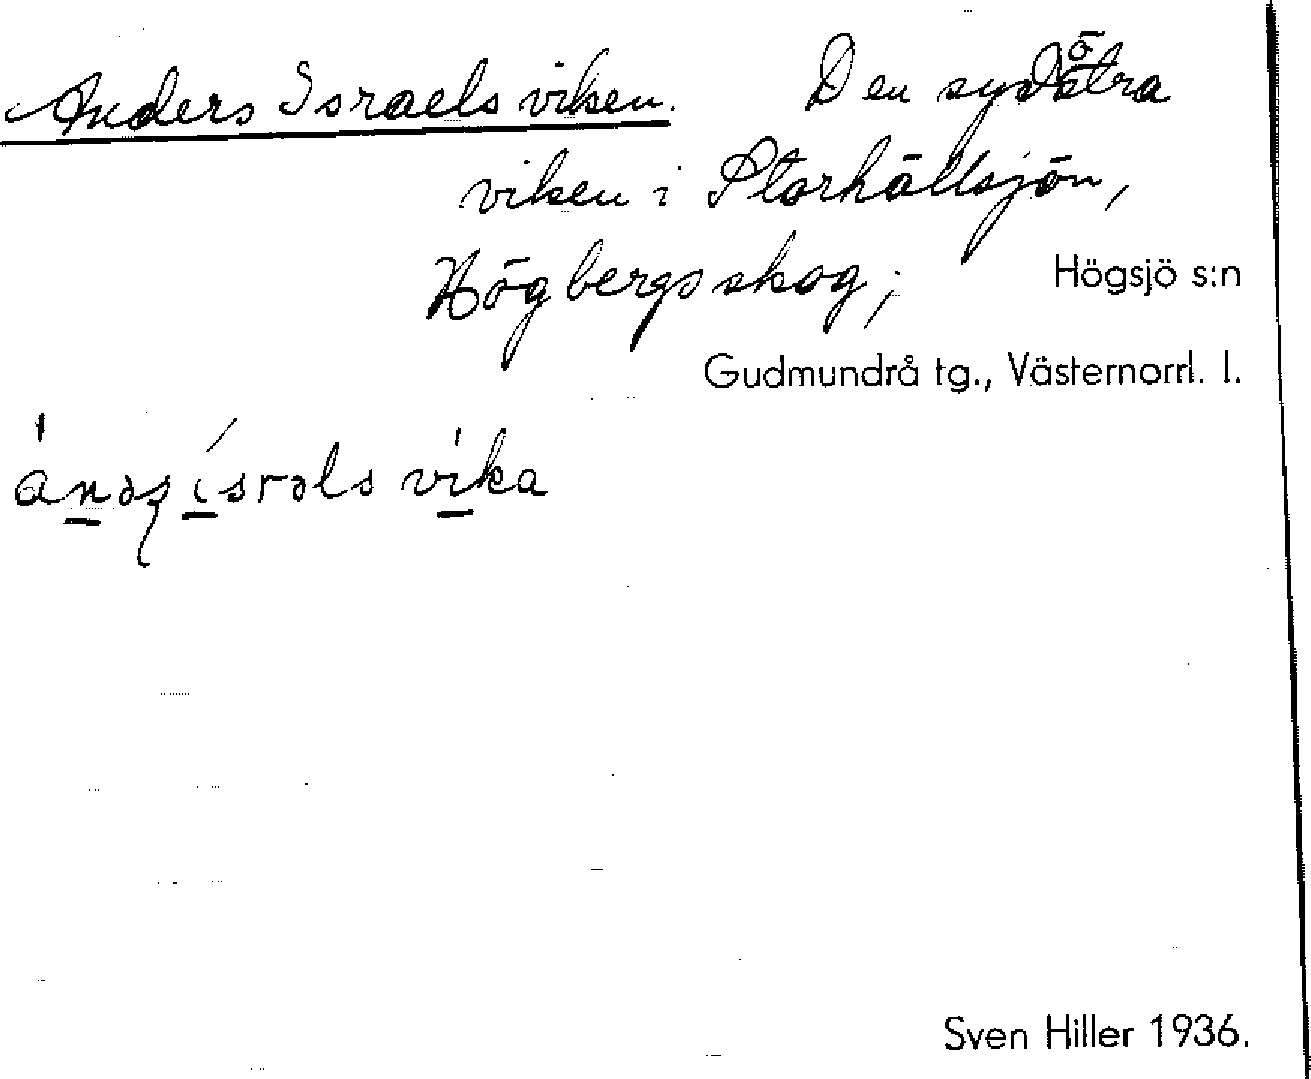 Anders Israels viken. Den sydöstra
viken i Storhällsjön,
Högbergsskog; Högsjö s:n
Gudmundrå tg., Västernorrl. l.
vika
Sven Hiller 1936.